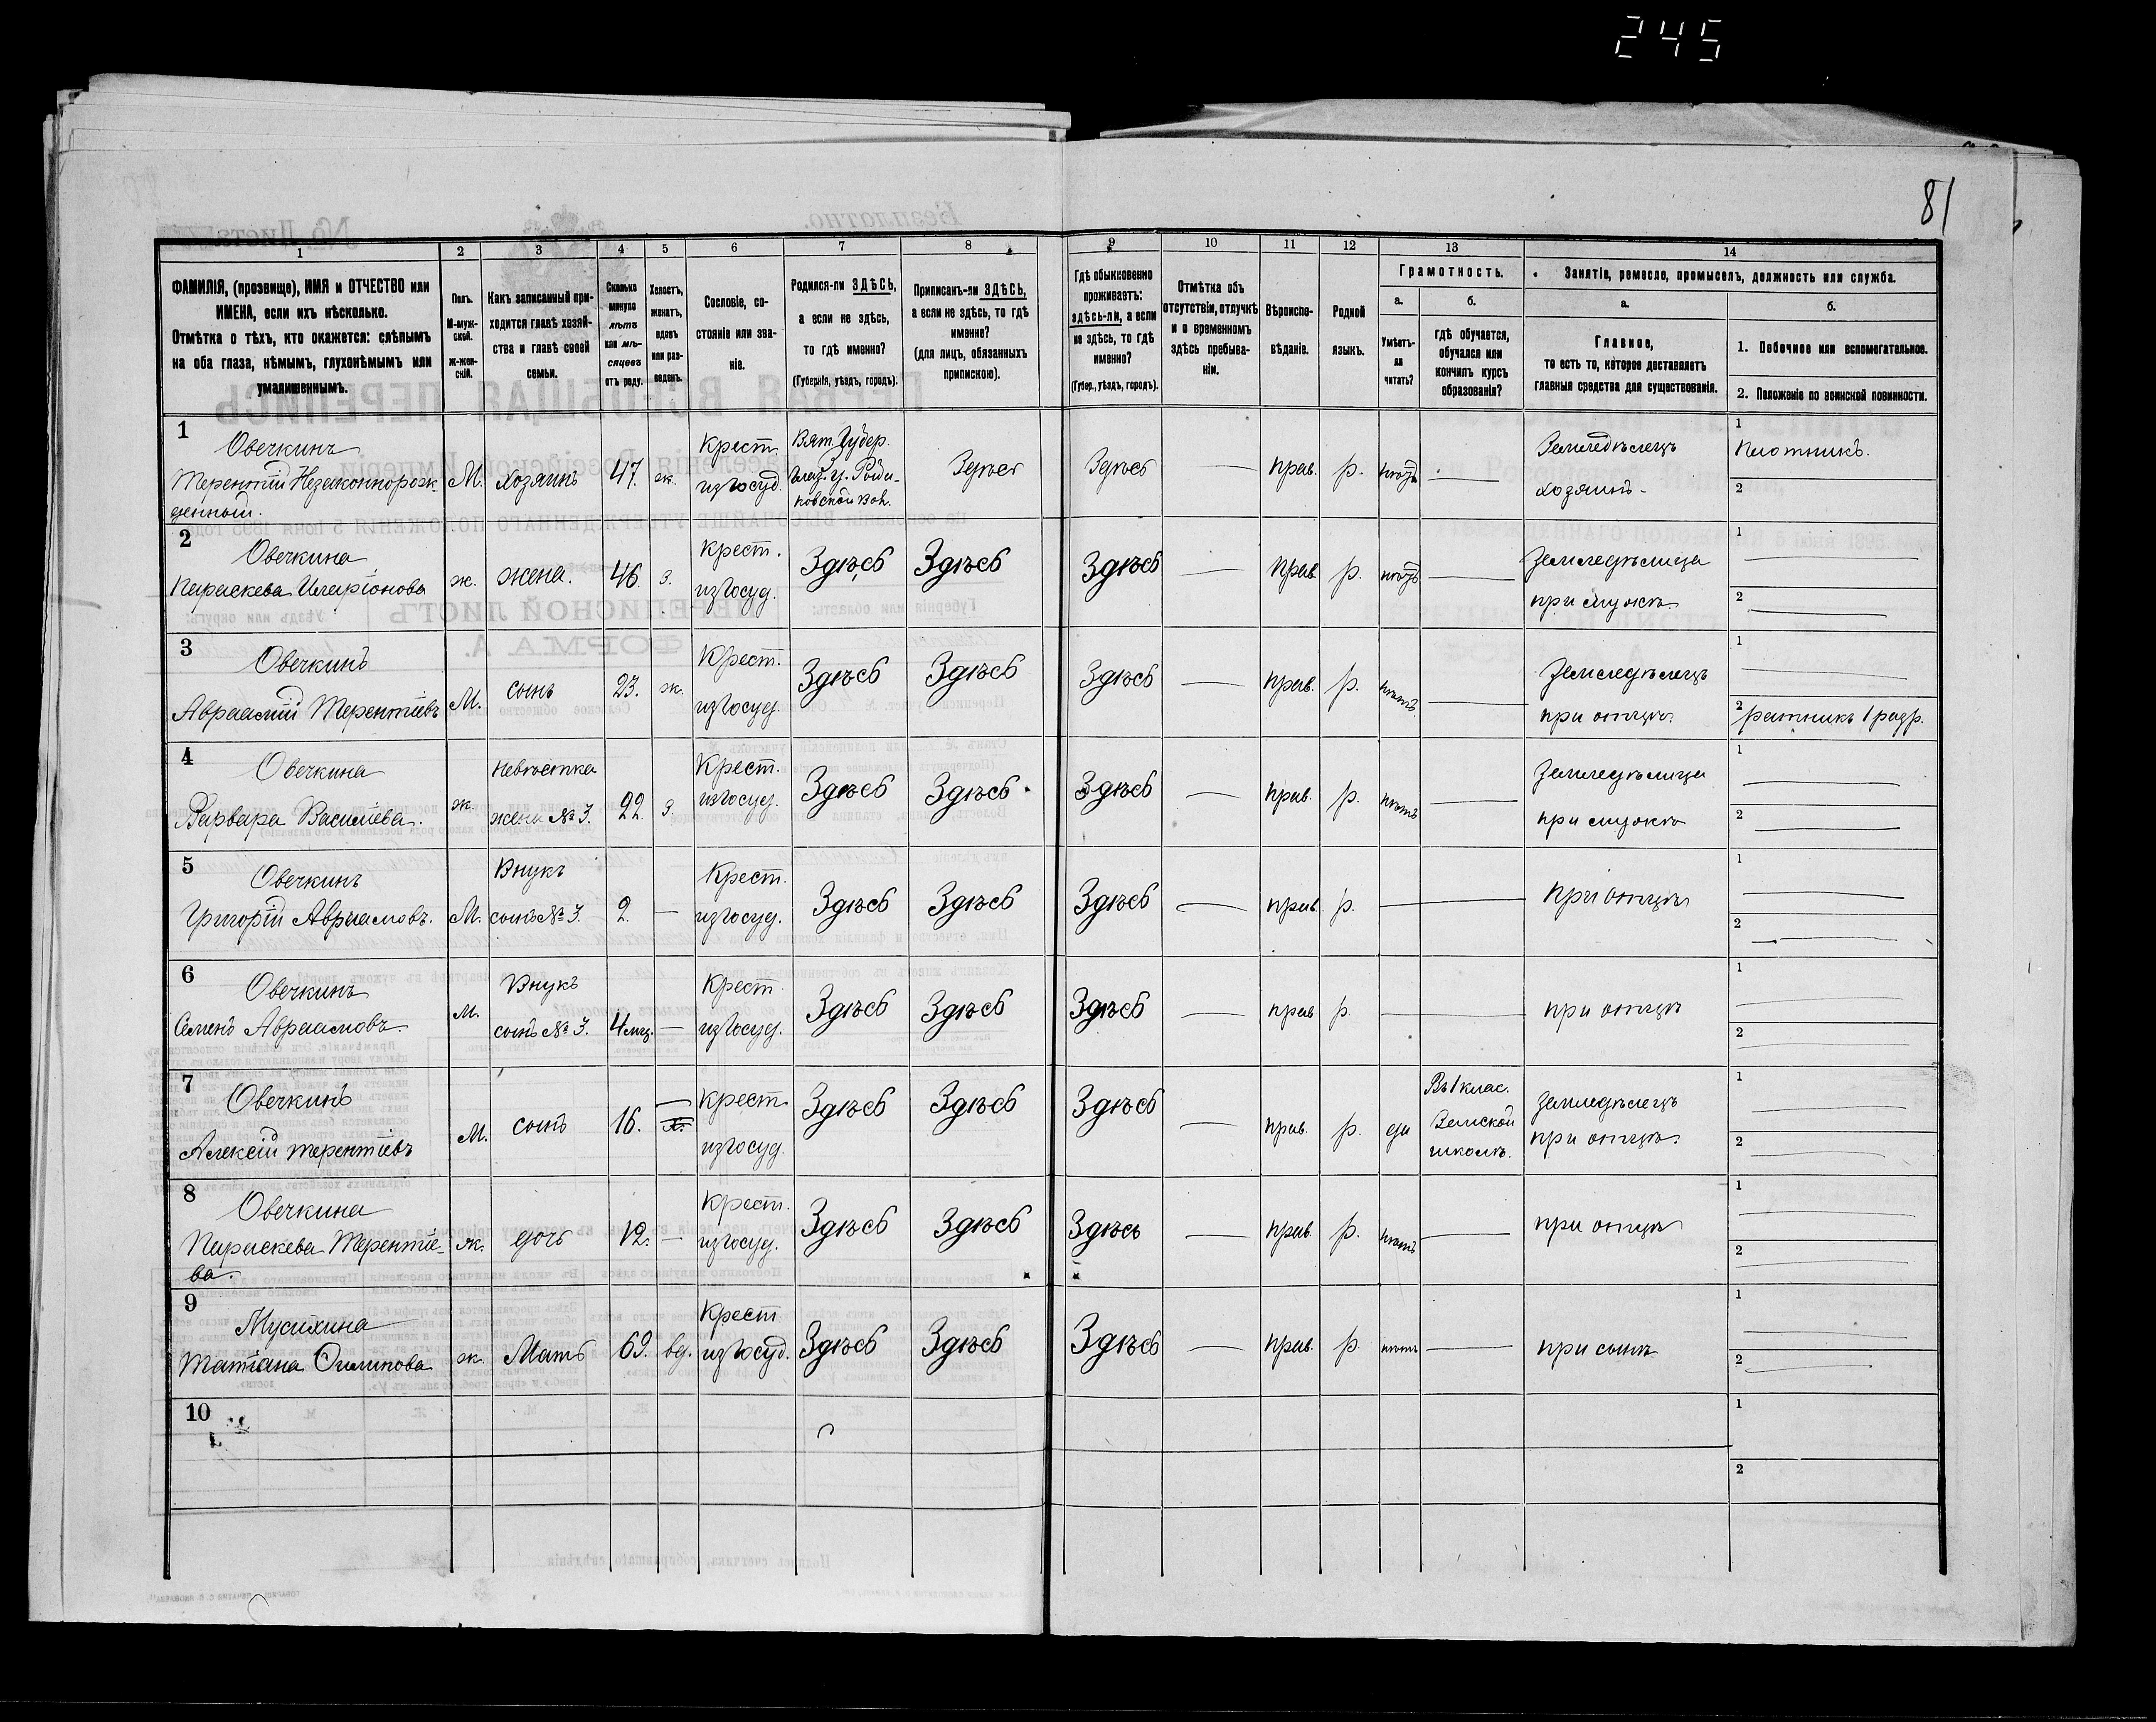 245
81
1
2
3
4
5
6
7
8
9
10
11
12
13
14
ФАМИЛІЯ, (прозвище), ИМЯ и ОТЧЕСТВО или
ИМЕНА, если ихъ нѣсколько.
Отмѣтка о тѣхъ, кто окажется: слѣпымъ
на оба глаза, нѣмымъ, глухонѣмымъ или
умалишеннымъ.
Полъ.
М-муж-
ской.
ж-жен-
скій.
Какъ записанный при-
ходится главѣ хозяй-
ства и главѣ своей
семьи.
Сколько
минуло
лѣтъ
или мѣ-
сяцевъ
отъ роду.
Холостъ,
женатъ,
вдовъ
или раз-
веденъ.
Сословіе, со-
стояніе или зва-
ніе.
Родился-ли ЗДѢСЬ,
а если не здѣсь,
то гдѣ именно?
(Губернія, уѣздъ, городъ).
Приписанъ-ли ЗДѢСЬ,
а если не здѣсь, то гдѣ
именно?
(для лицъ, обязанныхъ
припискою).
Гдѣ обыкновенно
проживаетъ:
здѣсь-ли, а если
не здѣсь, то гдѣ
именно?
(Губер., уѣздъ, городъ).
Отмѣтка объ
отсутствіи, отлучкѣ
и о временномъ
здѣсь пребыва-
ніи.
Вѣроиспо-
вѣданіе.
Родной
языкъ.
Грамотность.
а.
Умѣетъ-
ли
читать?
б.
гдѣ обучается,
обучался или
кончилъ курсъ
образованія?
Занятіе, ремесло, промыселъ, должность или служба.
а.
Главное,
то есть то, которое доставляетъ
главныя средства для существованія.
б.
1. Побочное или вспомогательное.
2. Положеніе по воинской повинности.
1
Овечкинъ
Терентій Незаконнорож-
денный.
М. хозяинъ 47. ж.
Крест.
изъ госуд.
Вят. Губер.
Глаз. у.
ковской вол.
Здѣсь
Здѣсь
— прав. р.
—
Земледѣлецъ
хозяинъ
1
Плотникъ.
2
2
Овечкина
Параскева Иларіонова
ж. жена. 46. з.
крест.
изъ госуд.
Здѣсь Здѣсь Здѣсь — прав. р. —
Земледѣлица
при мужѣ
1 —
2 —
3
Овечкинъ
Авраамій Терентіевъ
М. сынъ 23. ж.
Крест.
изъ госуд.
Здѣсь Здѣсь Здѣсь — прав. р. нѣтъ —
Земледѣлецъ
при отцѣ.
1 —
2 ратникъ 1 разр.
4
Овечкина
Варвара Васильева.
ж.
невѣстка
жена № 3.
22. з.
Крест.
изъ госуд.
Здѣсь Здѣсь Здѣсь — прав. р. нѣтъ —
Земледѣлица
при мужѣ
1 —
2 —
5
Овечкинъ
Григорій Авраамовъ.
М.
Внукъ
сынъ № 3.
2. —
Крест.
изъ госуд.
Здѣсь Здѣсь Здѣсь — прав. р. —
при отцѣ
1 —
2 —
6
Овечкинъ
Семенъ Авраамовъ
М.
Внукъ
сынъ № 3.
4 мц. —
Крест.
изъ госуд.
Здѣсь Здѣсь Здѣсь — прав. р. —
при отцѣ
1 —
2 —
7
Овечкинъ
Алексій Терентіевъ
М. сынъ 16. —
Крест.
изъ госуд.
Здѣсь Здѣсь Здѣсь — прав. р. да
Въ 1 клас.
Земской
школѣ.
Земледѣлецъ
при отцѣ.
1 —
2 —
8
Овечкина
Параскева Терентіе-
ва.
ж. дочь 12. —
Крест.
изъ госуд.
Здѣсь Здѣсь Здѣсь — прав. р. нѣтъ —
при отцѣ
1 —
2 —
9
Мусихина
Татіана
ж. Мать 69. вд.
Крест.
изъ госуд.
Здѣсь Здѣсь Здѣсь — прав. р. нѣтъ —
при сынѣ
1 —
2 —
10
1
2